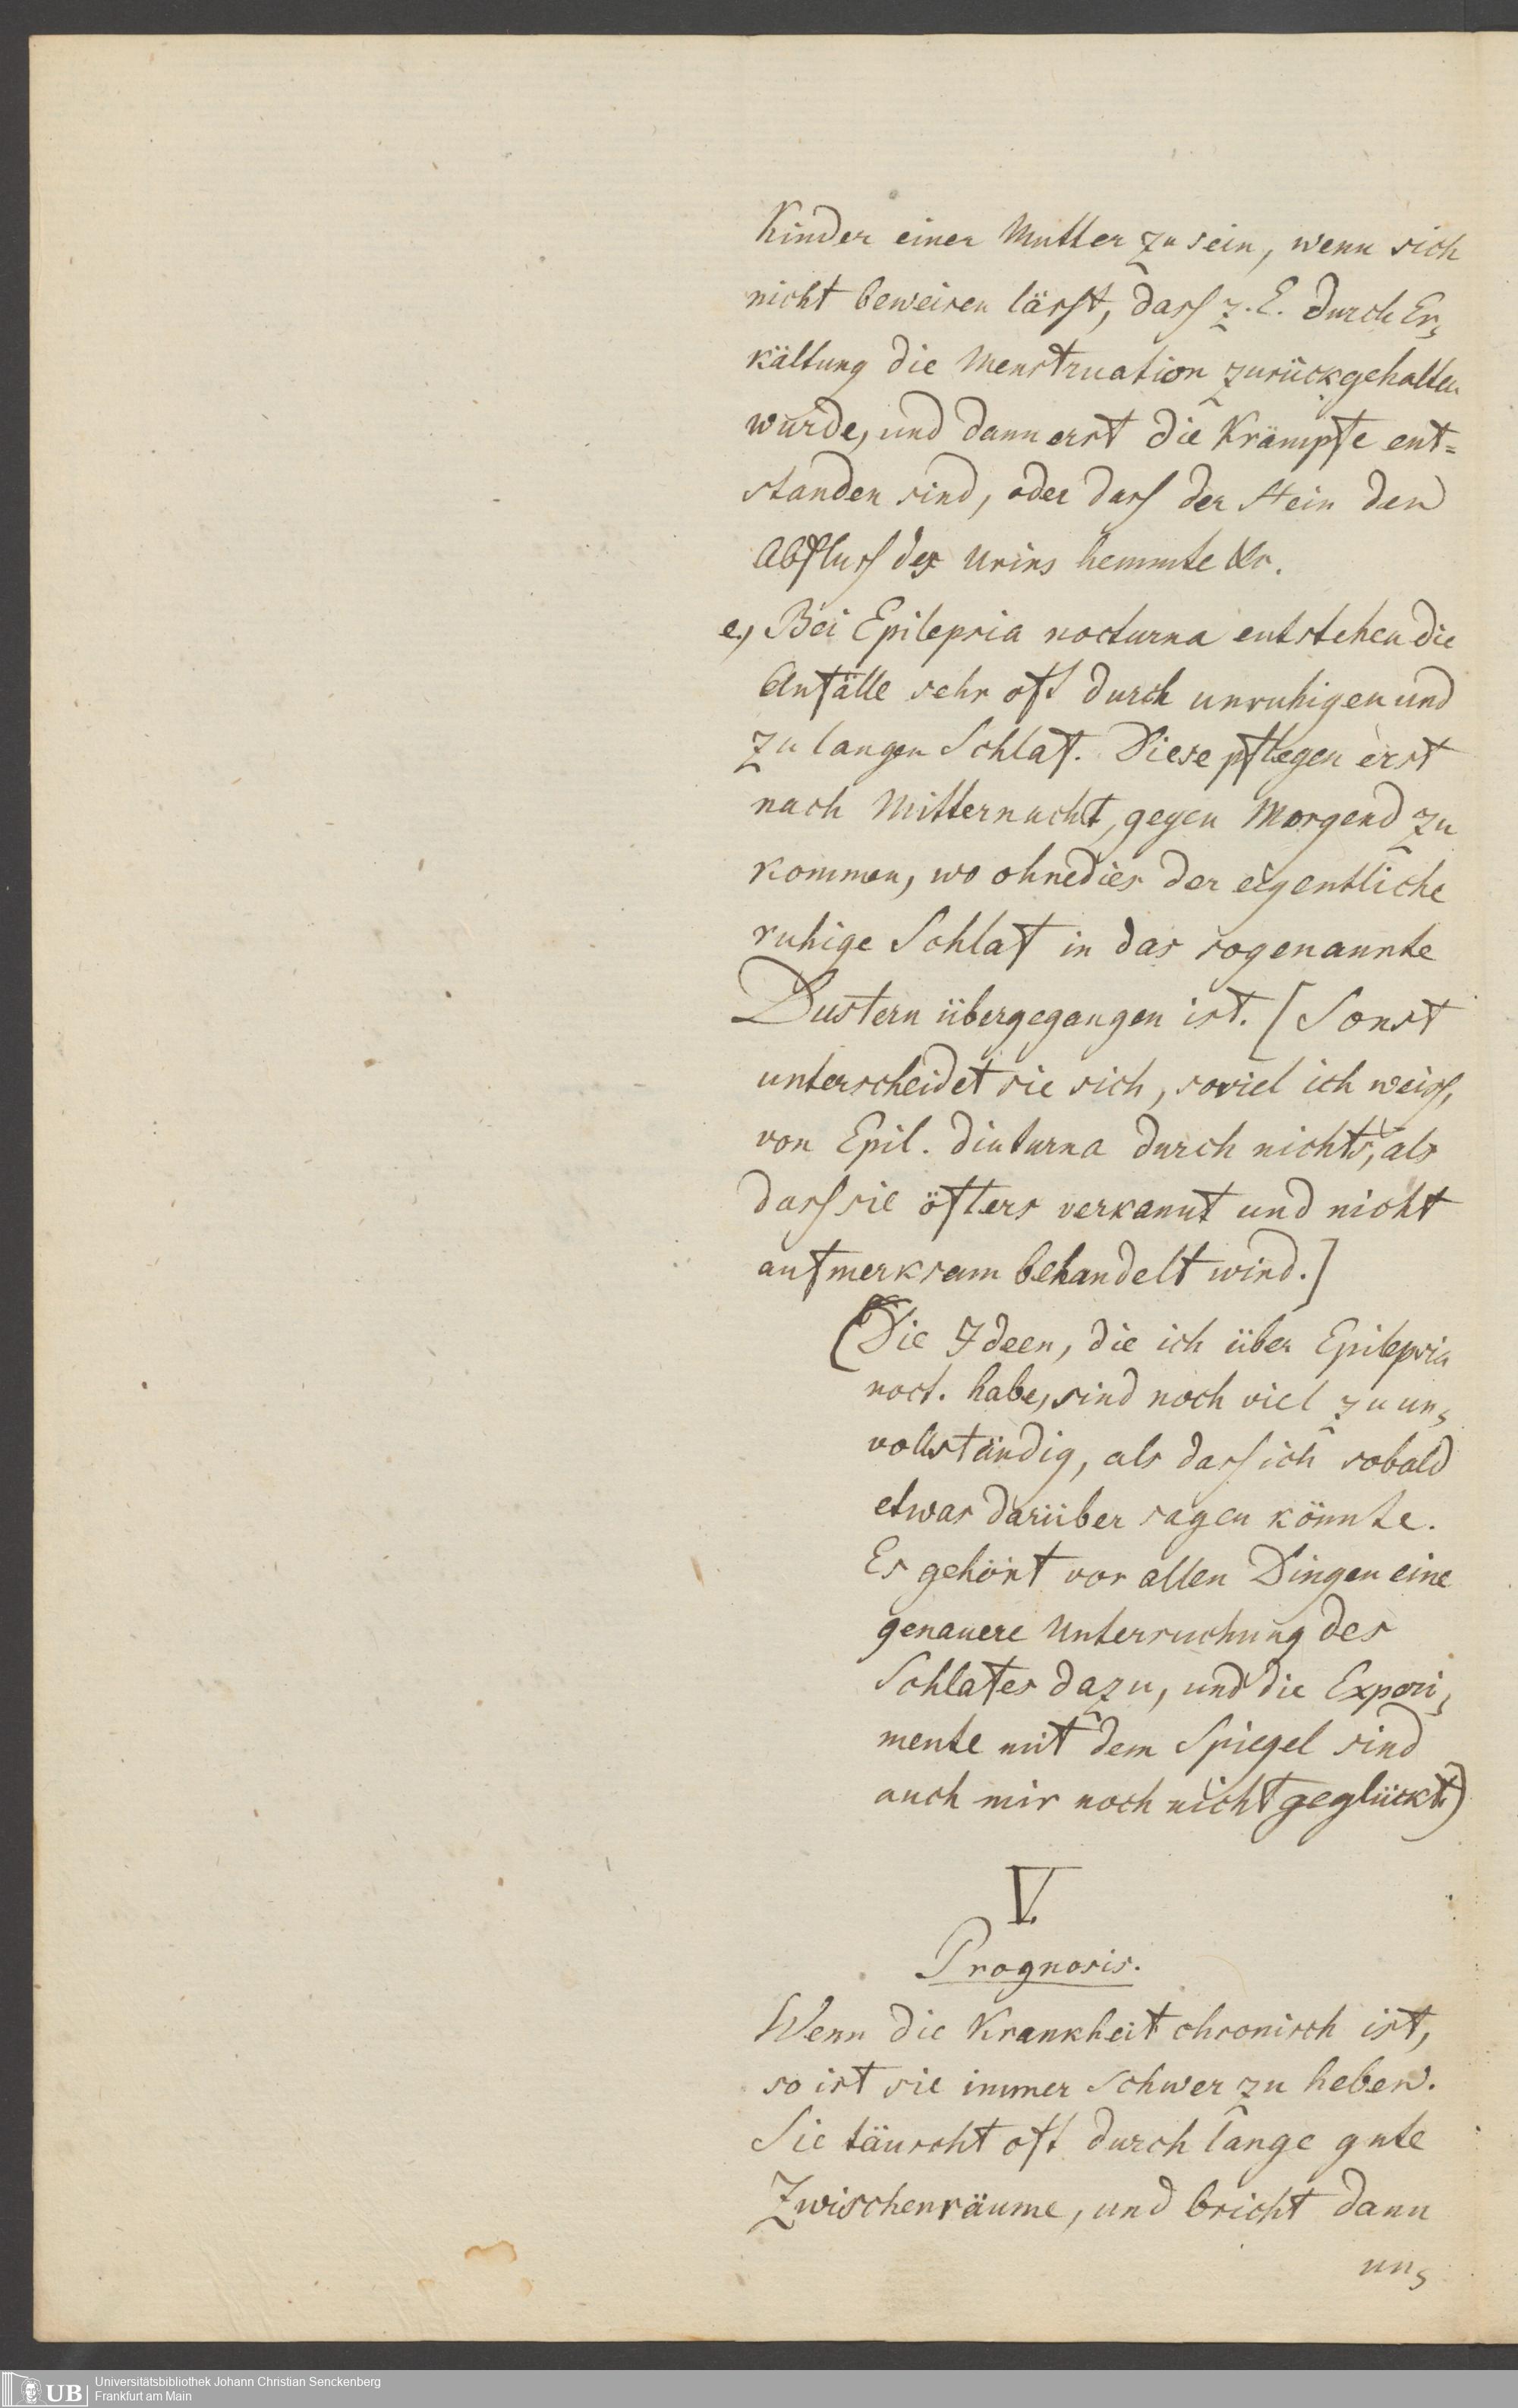 Kinder einer Mutter zu sein, wenn sich
nicht beweisen lässt, dass z. E. durch Er,
kältung die Menstruation zurückgehalten
wurde, und dann erst die Krämpfe ent=
standen sind, oder dass der Stein den
Abfluss des Urins hemmte &c.
e., Bei Epilepsia nocturna entstehen die
Anfälle sehr oft durch unruhigen und
zu langen Schlaf. Diese pflegen erst
nach Mitternacht, gegen Morgend zu
kommen, wo ohnedies der eigentliche
ruhige Schlaf in das sogenannte
Dustern übergegangen ist. [Sonst
unterscheidet sie sich, soviel ich weiss,
von Epil. diuturna durch nichts, als
dass sie öfters verkannt und nicht
aufmerksam behandelt wird.]
(Die Ideen, die ich über Epilepsia
noct. habe, sind noch viel zu un,
vollständig, als dass ich sobald
etwas darüber sagen könnte.
Es gehört vor allen Dingen eine
genauere Untersuchung des
Schlafes dazu, und die Experi,
mente mit dem Spiegel sind
auch mir noch nicht geglückt.)
V.
Prognosis.
Wenn die Krankheit chronisch ist,
so ist sie immer schwer zu heben.
Sie täuscht oft durch lange gute
Zwischenräume, und bricht dann
un,
UB
Universitätsbibliothek Johann Christian Senckenberg
Frankfurt am Main